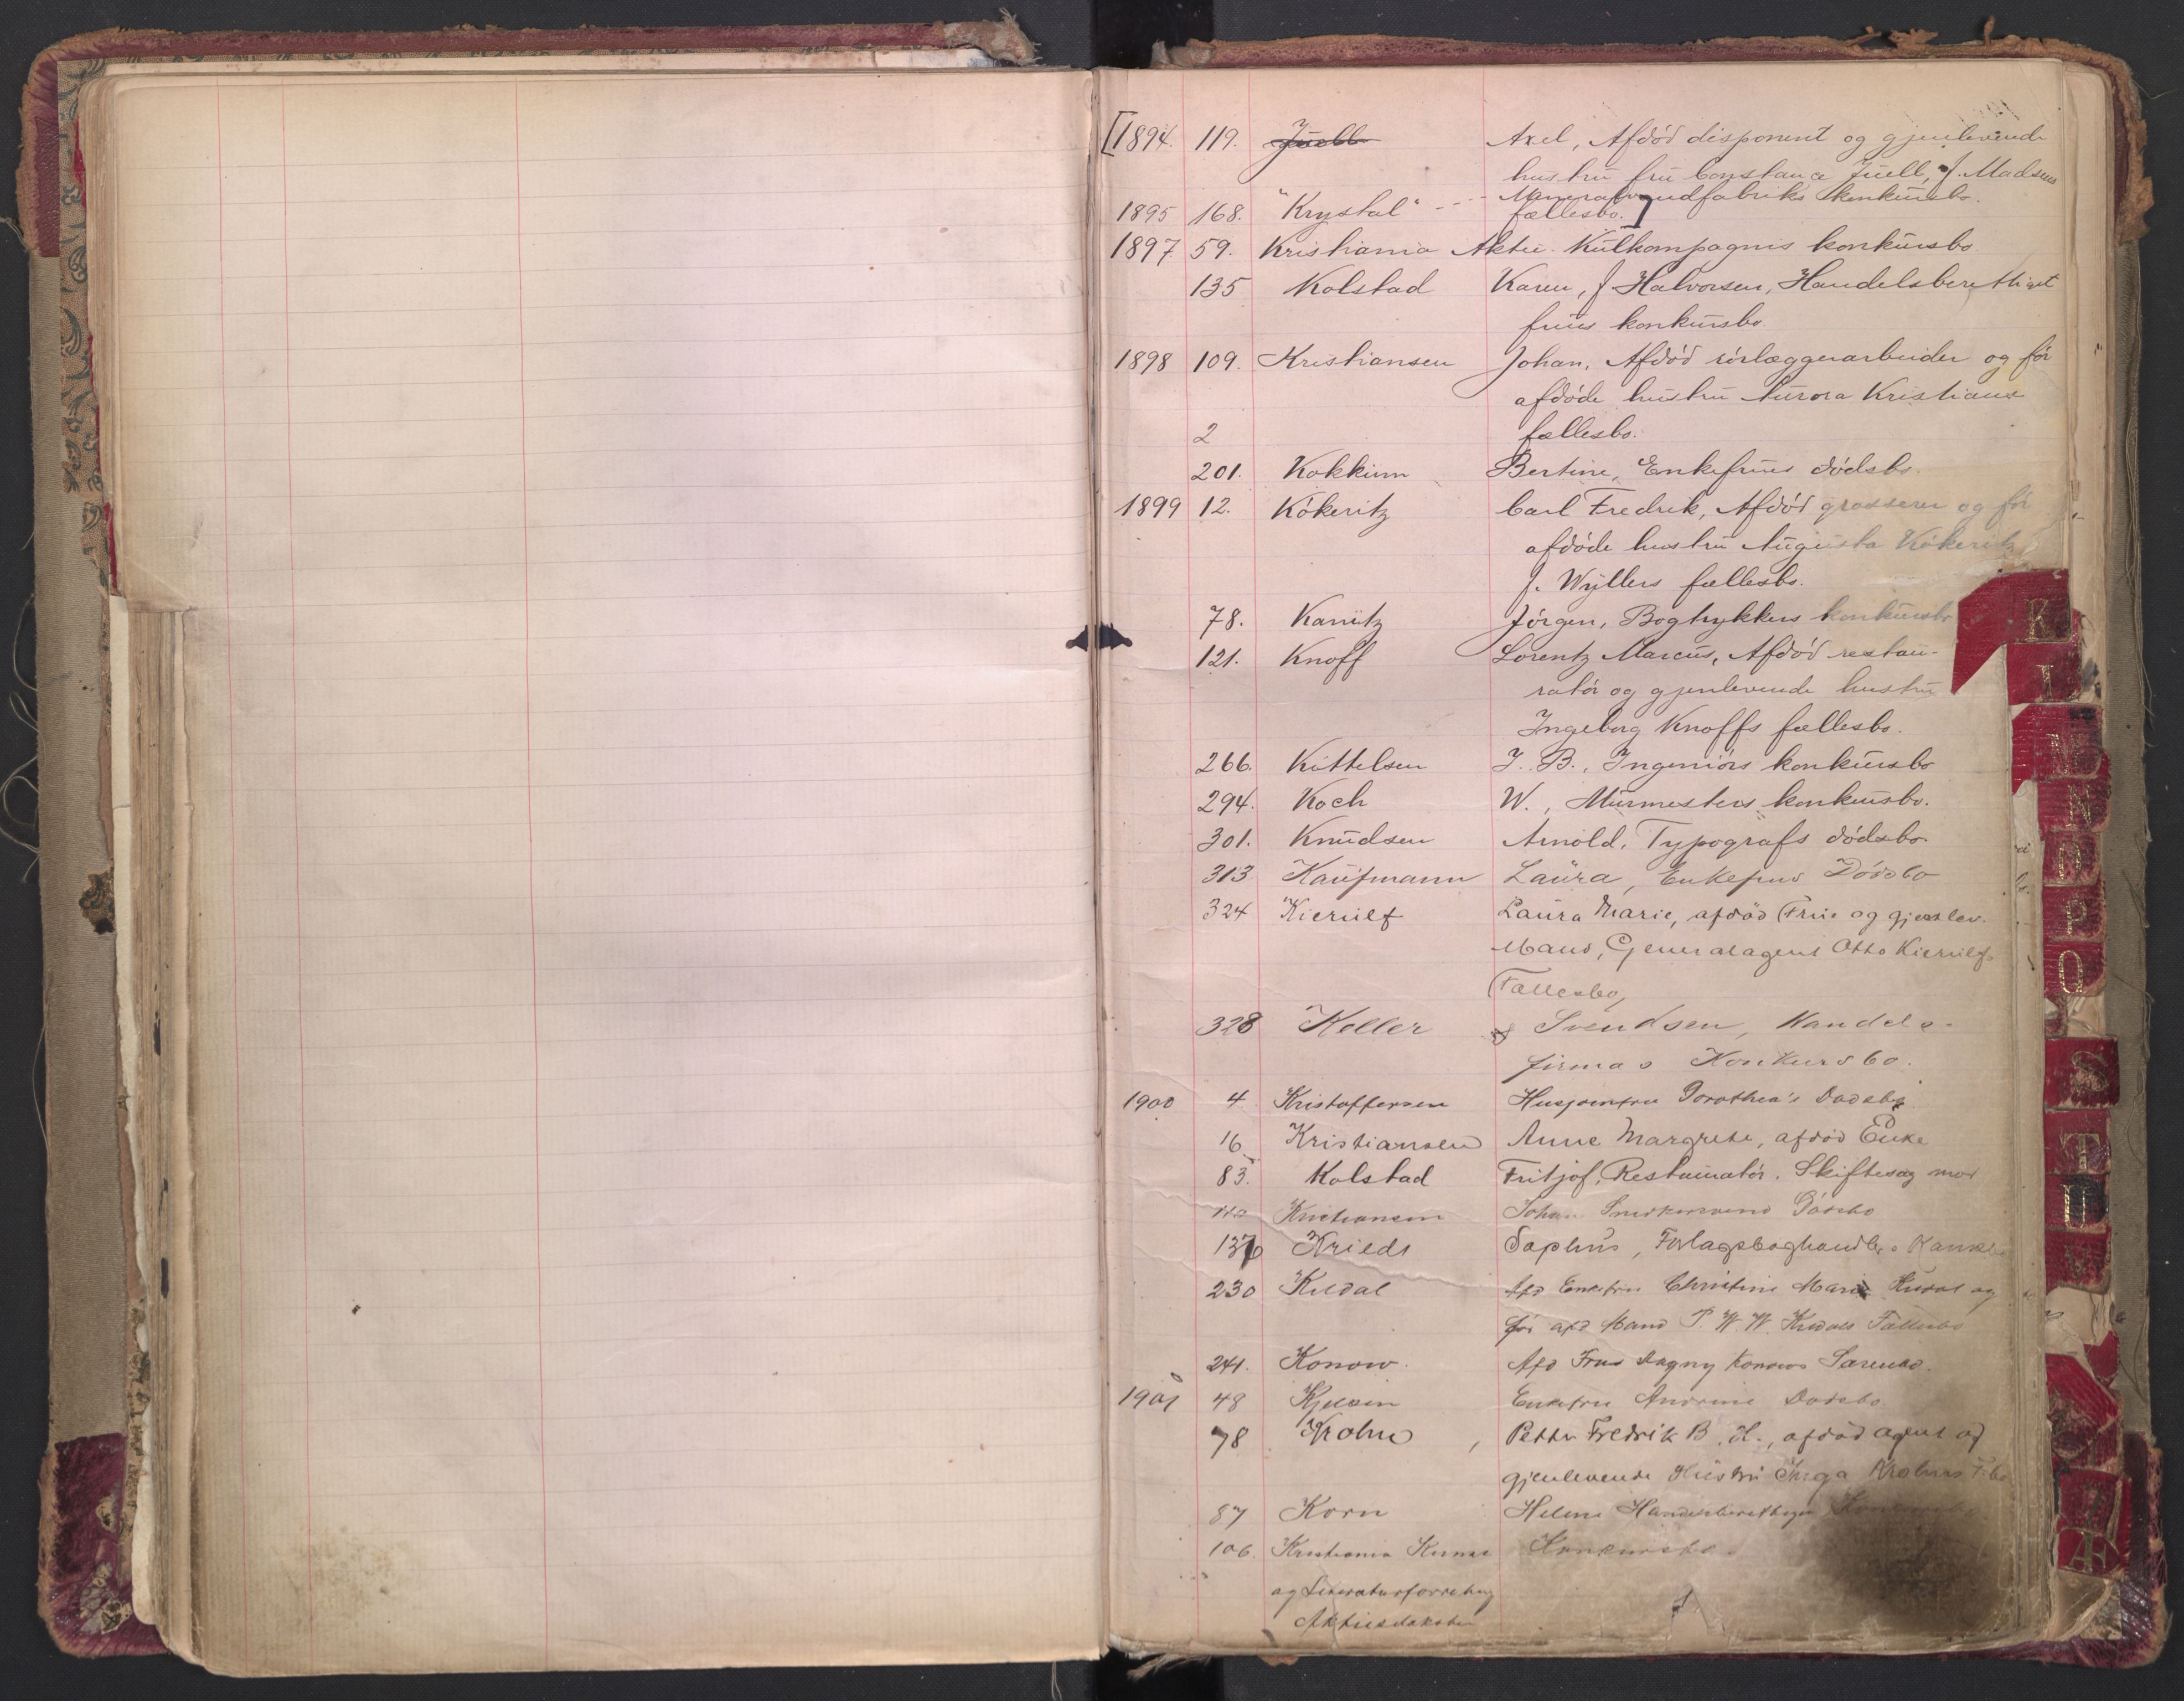 [1894. 119. Juell Axel, Afdöd disponent og gjenlevende
hustru fru Constance Juell, f. Madsens
1895 168. "Krystal" --- Mineralvandfabriks konkursbo.
fællesbo.]
1897 59. Kristiania Aktie-Kulkompagnis konkursbo
135 Kolstad Karen, f Halvorsen, Handelsberettiget
frues konkursbo
1898 109. Kristiansen Johan, Afdöd rörlæggerarbeider og för
afdöde hustru Aurora Kristians
2 fællesbo.
201. Kokkinn Bertine, Enkefrues dödsbo.
1899 12. Kökeritz Carl Fredrik, Afdöd grosserer og för
afdöde hustru Augusta Kökeritz
f. Wyllers fællesbo.
78. Kanitz Jörgen, Bogtrykkers konkursbo
121. Knoff Lorentz Marcus, Afdöd restau-
ratör og gjenlevende hustru
Ingeborg Knoffs fællesbo.
266. Kittelsen J. B., Ingeniörs konkursbo
294. Koch W., Murmesters konkursbo.
301. Knudsen Arnold, Typografs dödsbo
313 Kaufmann Laura, Enkefrus Dödsbo
324 Kierulf Laura Marie, afdöd Frue og gjenlev.
Mand, Generalagent Otto Kierulfs
Fællesbo,
328 Keller & Svendsen, Handels-
firmas Konkursbo.
1900 4 Kristoffersen Husjomfru Dorothea's Dödsbo
16 Kristiansen Anne Margrete, afdöd Enke
83. Kolstad Fritjof, Restauratör. Skiftesag mod
Kristiansen Johan Snedkersvend Dödsbo
136 Kriedt Sophus, Forlagsboghandlers Konk
230 Kildal Afd Enkefru Christine Marie Kildal og
för afd Mand P. W. W. Kildals Fællesbo
241. Konow. Afd Frue Dagny Konows Særenbo.
1901 48 Enkefru Andrine Dödsbo
78 Krohn, Petter Fredrik B. H., afdöd agent og
gjenlevende Hustru Inga Krohns F.bo
87 Korn Helene Handelsberettiget
106. Kristiania Kunst Konkursbo.
og Literaturforretning
Aktieselskabet
K
L
N
O
P
Q
S
T
U
Æ